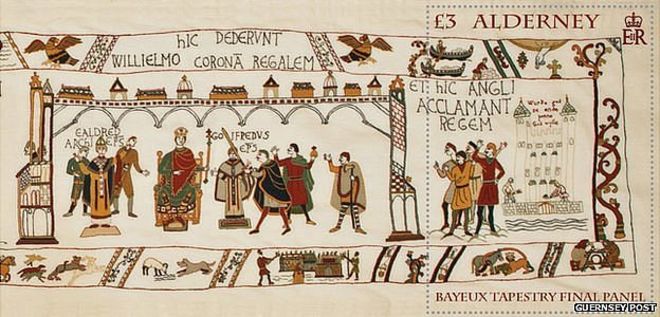 £3 ALDERNEY
EIIR
hIC DEDERVNT
WILLIELMO CORONĀ REGALEM
ET: hIC ANGLI
ACCLAMANT
REGEM
EALDRED
ARChIEPS
GOIFREDVS
EPS
BAYEUX TAPESTRY FINAL PANEL
GUERNSEY POST